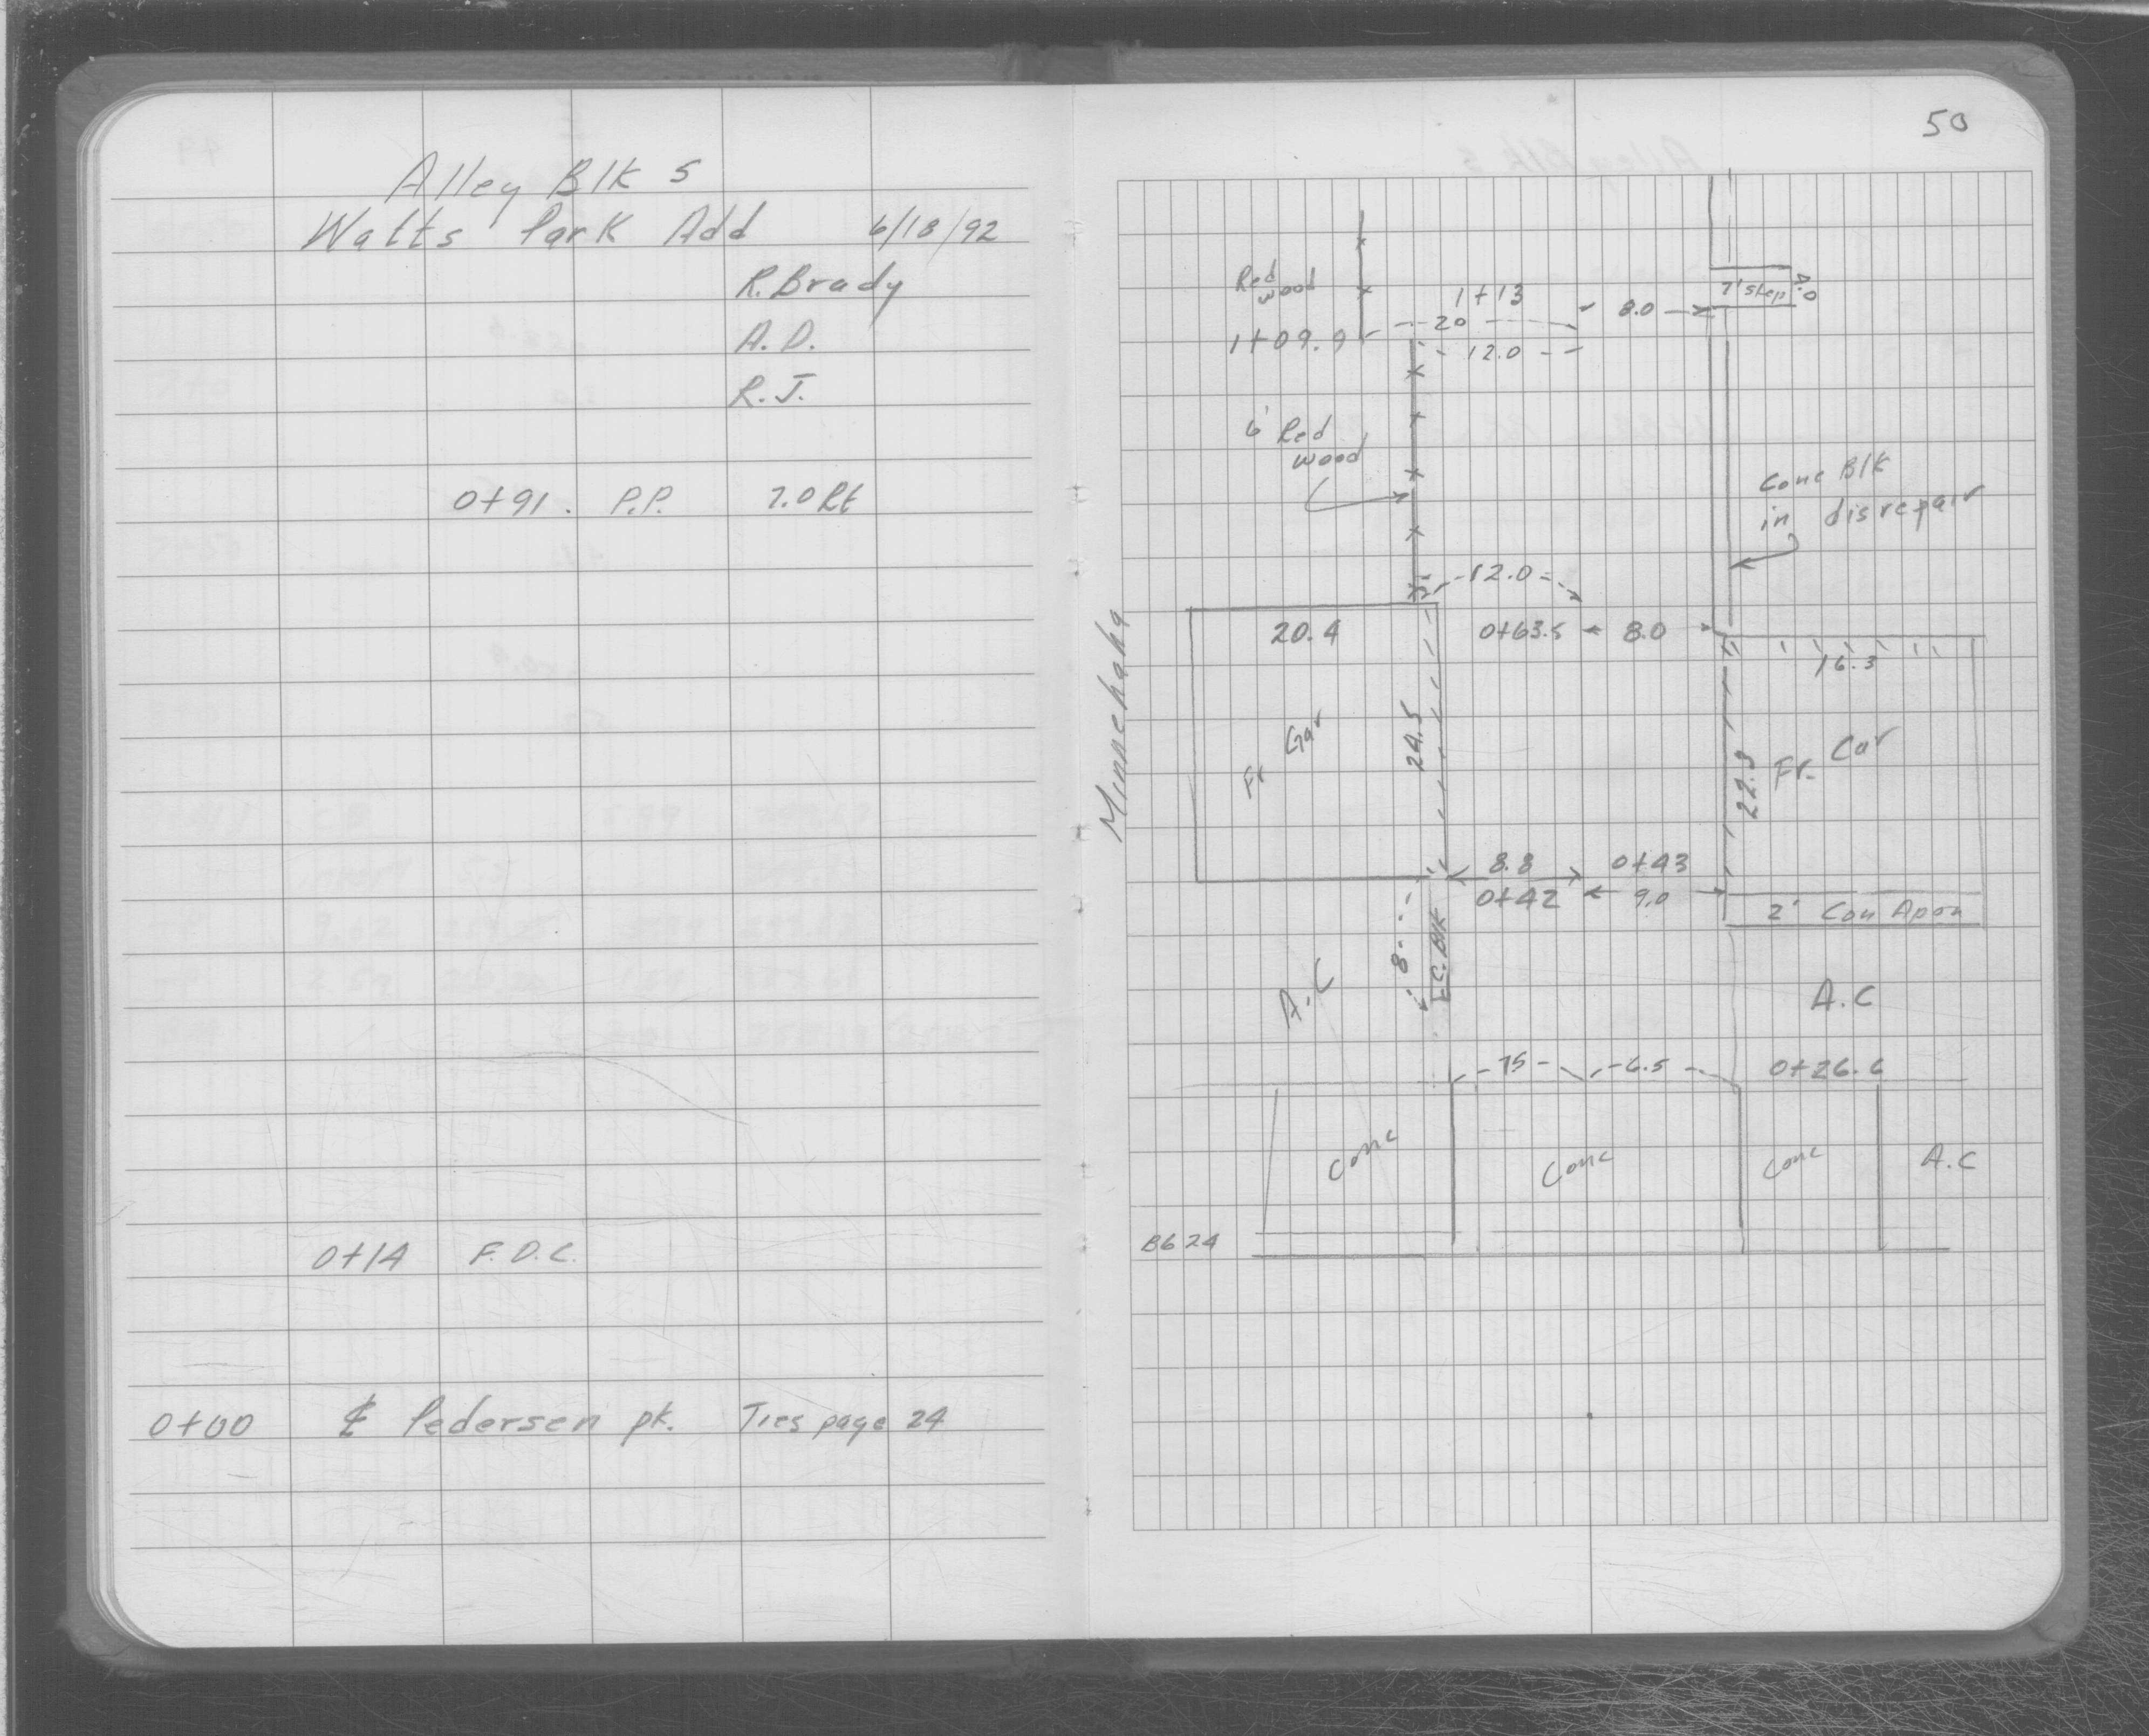 Alley Blk 5
Watts Park Add 6/18/92
R. Brady
A.D.
R.J.
0+91. P.P. 7.0 Rt
0+14 F.D.C.
0+00 ℄ Pedersen pk. Ties page 24
50
Red wood
1+13
8.0
7' step
4.0
20
1+09.9
12.0
6' Red
wood
Conc Blk
in disrepair
12.0
20.4
0+63.5
8.0
16.3
Minnehaha
24.5
Fr Gar
22.8
Fr. Gar
8.8
0+43
0+42
9.0
2' Con Apon
8
C. Blk
A.C
A.C
75
6.5
0+26.6
Conc
Conc
Conc
A.C
B624